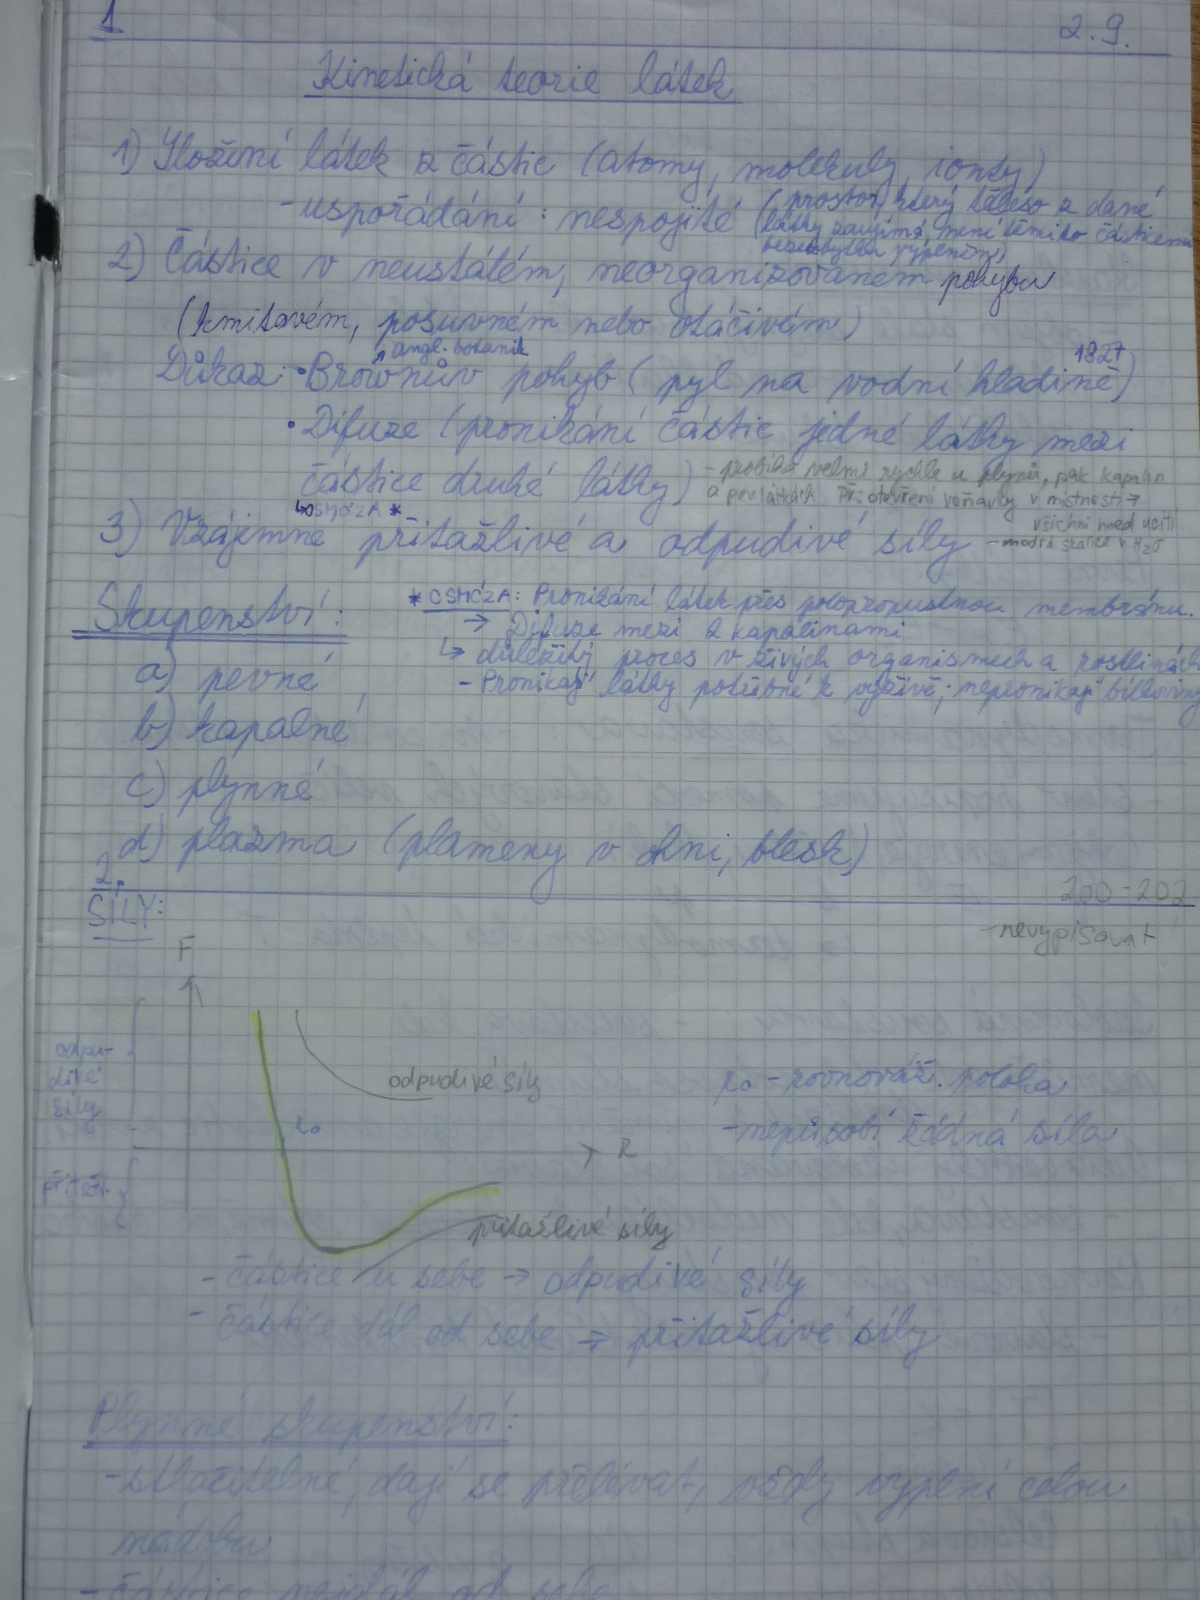 1
2.9.
Kinetická teorie látek
1) Složení látek z částic (atomy, molekuly, ionty)
- uspořádání: nespojité (prostor, který těleso z dané
látky zaujímá, není těmito částicemi
beze zbytku vyplněn)
2) Částice v neustálém, neorganizovaném pohybu
(kmitavém, posuvném nebo otáčivém)
angl. botanik
Důkaz: • Brownův pohyb (pyl na vodní hladině) 1827
• Difuze (pronikání částic jedné látky mezi
částice druhé látky) - probíhá velmi rychle u plynů, pak kapalin
a pevných látkách. Př: otevření voňavky v místnosti →
↳ OSMÓZA *
všichni hned ucítí
3) Vzájemné přitažlivé a odpudivé síly - modrá skalice v H₂O
Skupenství:
* OSMÓZA: Pronikání látek přes polopropustnou membránu.
→ Difuze mezi 2 kapalinami
↳ důležitý proces v živých organismech a rostlinách
- Pronikají látky potřebné k výživě; nepronikají bílkoviny
a) pevné
b) kapalné
c) plynné
d) plazma (plameny v ohni, blesk)
2.
200-202
SÍLY:
- nevypisovat
F
odpu-
divé
síly
odpudivé síly
r₀ - rovnováž. poloha
- nepůsobí žádná síla
r₀
R
přitaž.
přitažlivé síly
- částice u sebe → odpudivé síly
- částice dál od sebe → přitažlivé síly
Plynné skupenství:
- stlačitelné, dají se přelévat, vždy vyplní celou
nádobu
- částice nejdál od sebe